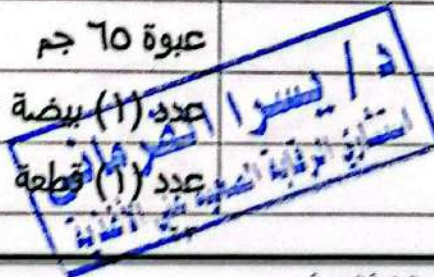 عبوة ٦٥ جم
عدد (١) بيضة
عدد (١) قطعة
د/ يسرا
استشاري الرقابة الصحية على الأغذية